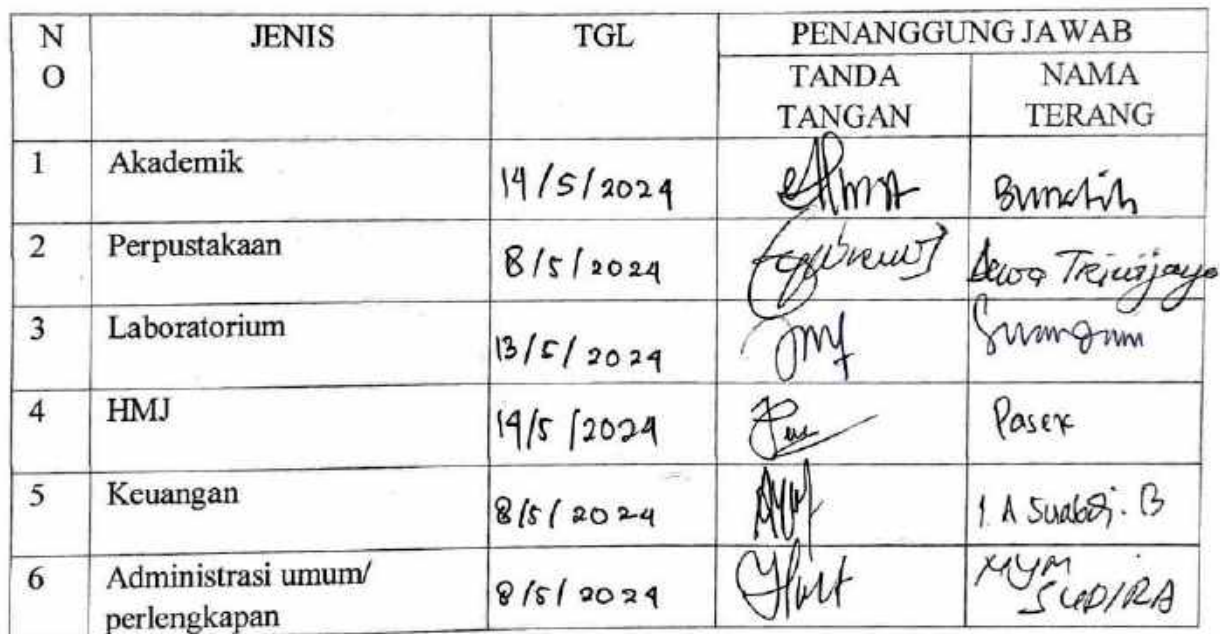 N
O
JENIS
TGL
PENANGGUNG JAWAB
TANDA
TANGAN
NAMA
TERANG
1
Akademik
14/5/2024
2
Perpustakaan
8/5/2024
Dewa Triwijaya
3
Laboratorium
13/5/2024
4
HMJ
14/5/2024
Pasek
5
Keuangan
8/5/2024
I A Suabdi. B
6
Administrasi umum/
perlengkapan
8/5/2024
NYM
SUDIRA